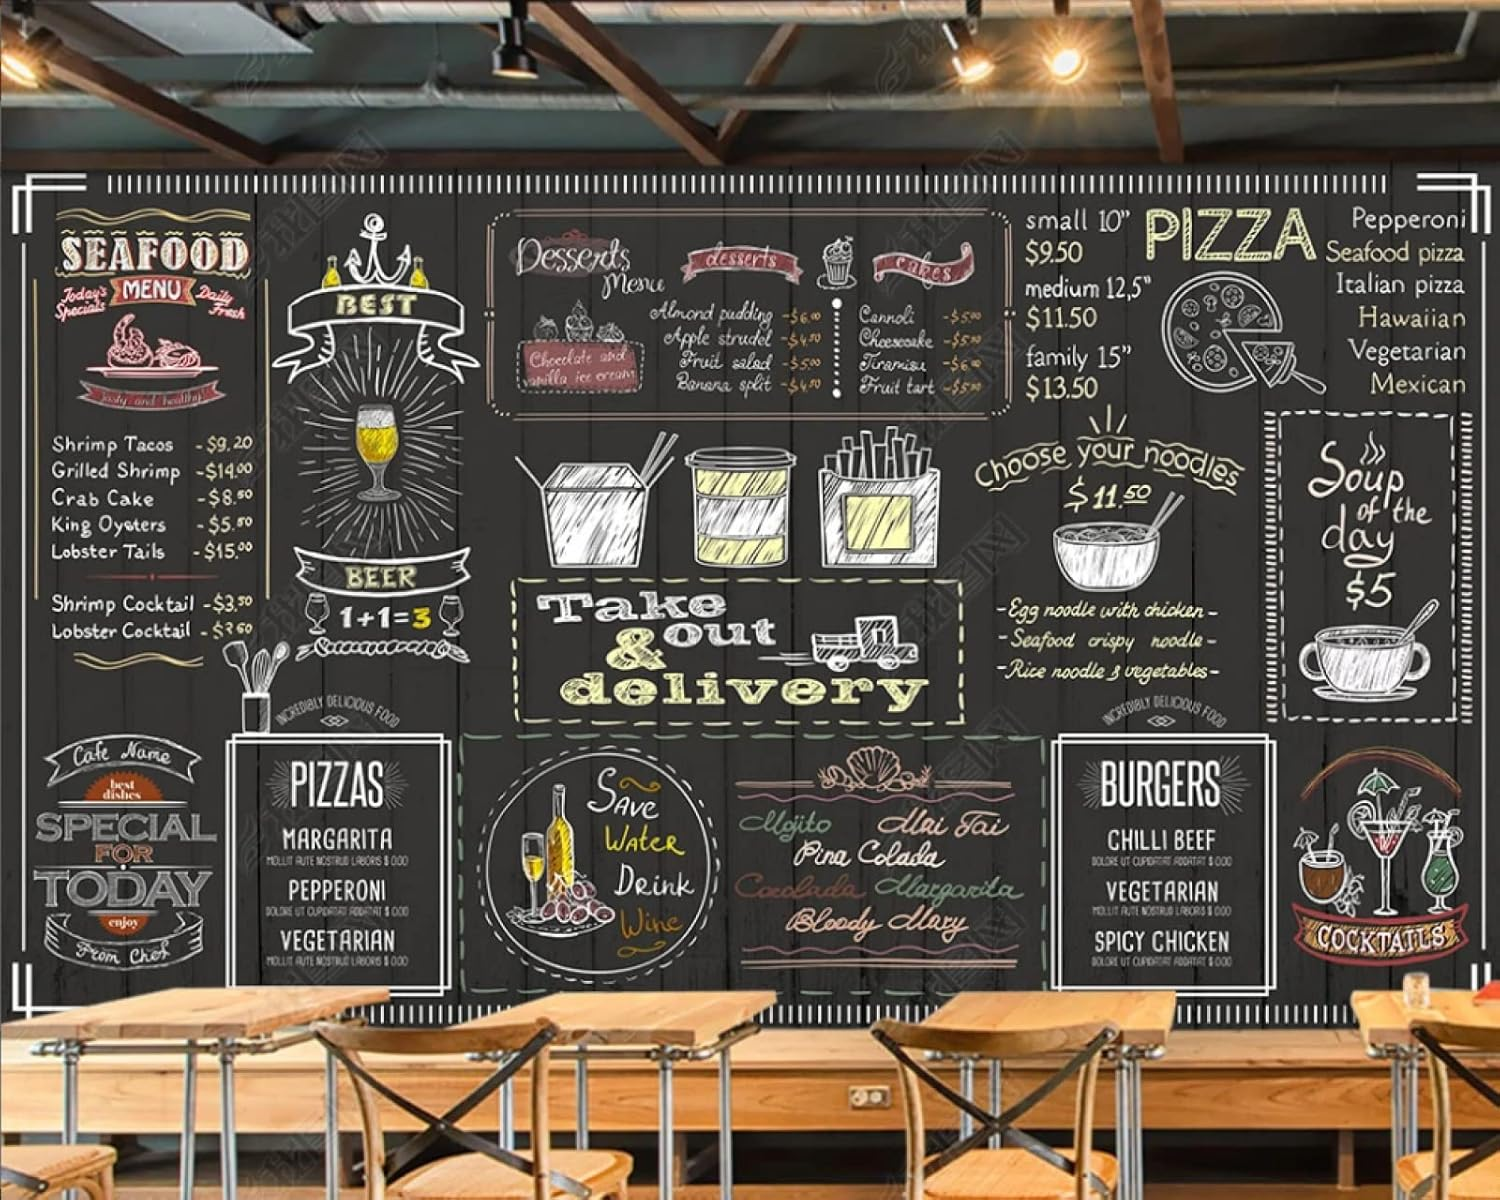 SEAFOOD
MENU
Today's
Specials
Daily
Fresh
Tasty and healthy!
Shrimp Tacos - $9.20
Grilled Shrimp - $14.00
Crab Cake - $8.50
King Oysters - $5.50
Lobster Tails - $15.00
Shrimp Cocktail - $3.50
Lobster Cocktail - $3.60
BEST
BEER
1+1=3
Desserts
Menu
desserts
cakes
Chocolate and
vanilla ice cream
Almond pudding - $6.00
Apple strudel - $4.50
Fruit salad - $5.00
Banana split - $4.50
Cannoli - $5.00
Cheesecake - $5.50
Tiramisu - $6.00
Fruit tart - $5.00
small 10"
$9.50
medium 12,5"
$11.50
family 15"
$13.50
PIZZA
Pepperoni
Seafood pizza
Italian pizza
Hawaiian
Vegetarian
Mexican
Take
& out
delivery
Choose your noodles
$11.50
-Egg noodle with chicken-
-Seafood crispy noodle-
-Rice noodle & vegetables-
Soup
of the
day
$5
Cafe Name
best
dishes
SPECIAL
FOR
TODAY
enjoy
From Chef
INCREDIBLY DELICIOUS FOOD
PIZZAS
MARGARITA
MOLLIT AUTE NOSTRUD LABORIS $ 0.00
PEPPERONI
DOLORE UT CUPIDATAT ADDATAT $ 0.00
VEGETARIAN
MOLLIT AUTE NOSTRUD LABORIS $ 0.00
Save
Water
Drink
Wine
Mojito Mai Tai
Pina Colada
Cacolada Margarita
Bloody Mary
INCREDIBLY DELICIOUS FOOD
BURGERS
CHILLI BEEF
DOLORE UT CUPIDATAT ADDATAT $ 0.00
VEGETARIAN
MOLLIT AUTE NOSTRUD LABORIS $ 0.00
SPICY CHICKEN
DOLORE UT CUPIDATAT ADDATAT $ 0.00
COCKTAILS